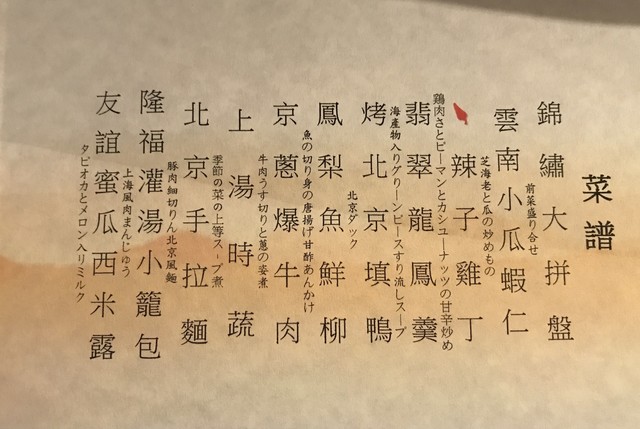 菜譜
錦繡大拼盤
前菜盛り合せ
雲南小瓜蝦仁
芝海老と瓜の炒めもの
辣子雞丁
鶏肉さとピーマンとカシユーナッツの甘辛炒め
翡翠龍鳳羹
海産物入りグリーンピースすり流しスープ
烤北京填鴨
北京ダック
鳳梨魚鮮柳
魚の切り身の唐揚げ甘酢あんかけ
京蔥爆牛肉
牛肉うす切りと葱の妾煮
上湯時蔬
季節の菜の上等スープ煮
北京手拉麵
豚肉細切りん北京風麺
隆福灌湯小籠包
上海風肉まんじゅう
友誼蜜瓜西米露
タピオカとメロン入りミルク